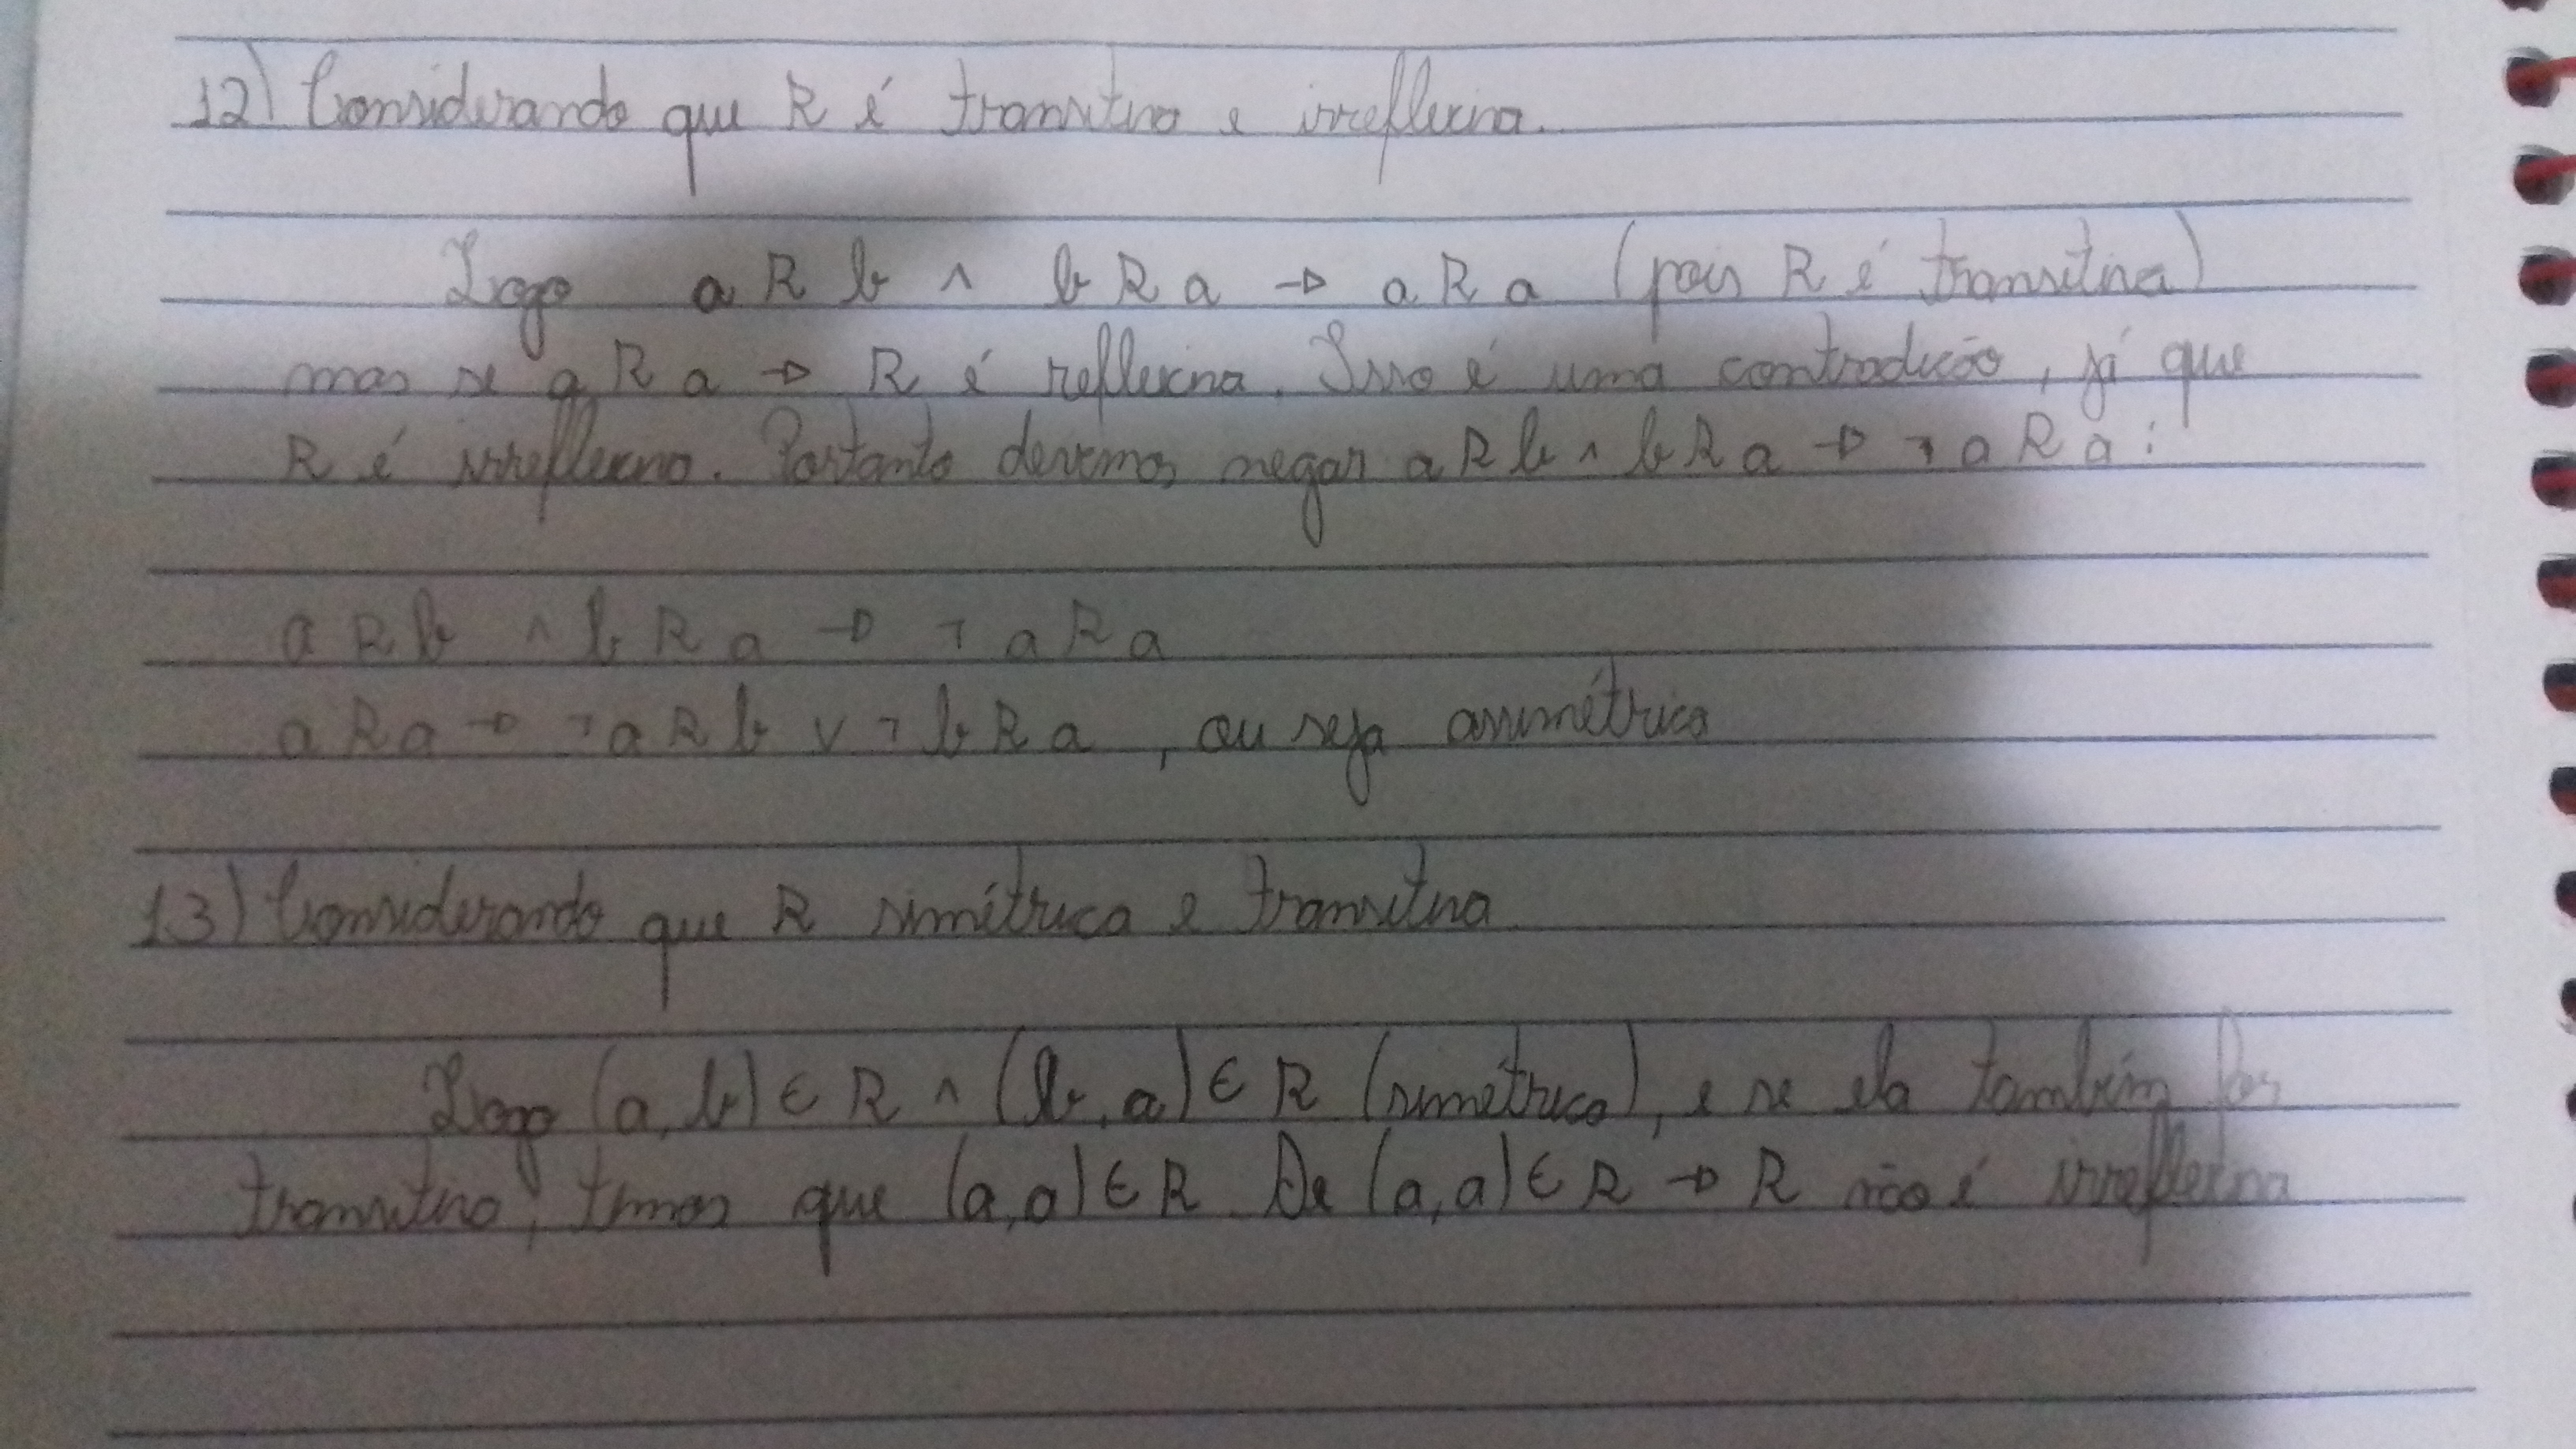 12) Considerando que R é transitiva e irreflexiva.
Logo a R b ∧ b R a → a R a (pois R é transitiva)
mas se a R a → R é reflexiva. Isso é uma contradição, já que
R é irreflexiva. Portanto devemos negar a R b ∧ b R a → ¬ a R a:
a R b ∧ b R a → ¬ a R a
a R a → ¬ a R b ∨ ¬ b R a, ou seja assimétrica
13) Considerando que R simétrica e transitiva
Logo (a, b) ∈ R ∧ (b, a) ∈ R (simétrica), e se ela também for
transitiva, temos que (a, a) ∈ R. De (a, a) ∈ R → R não é irreflexiva